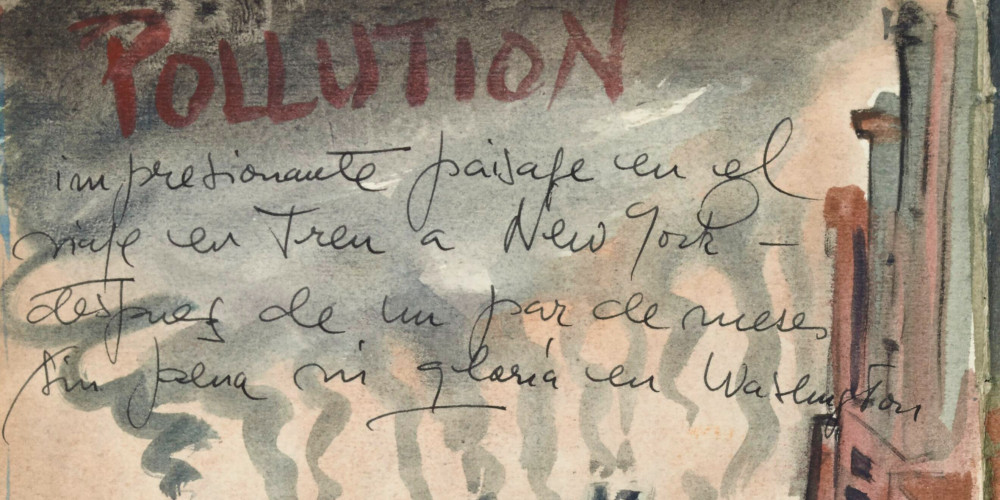 POLLUTION
impresionante paisaje en el
viaje en Tren a New York —
despues de un par de meses
sin pena ni gloria en Washington